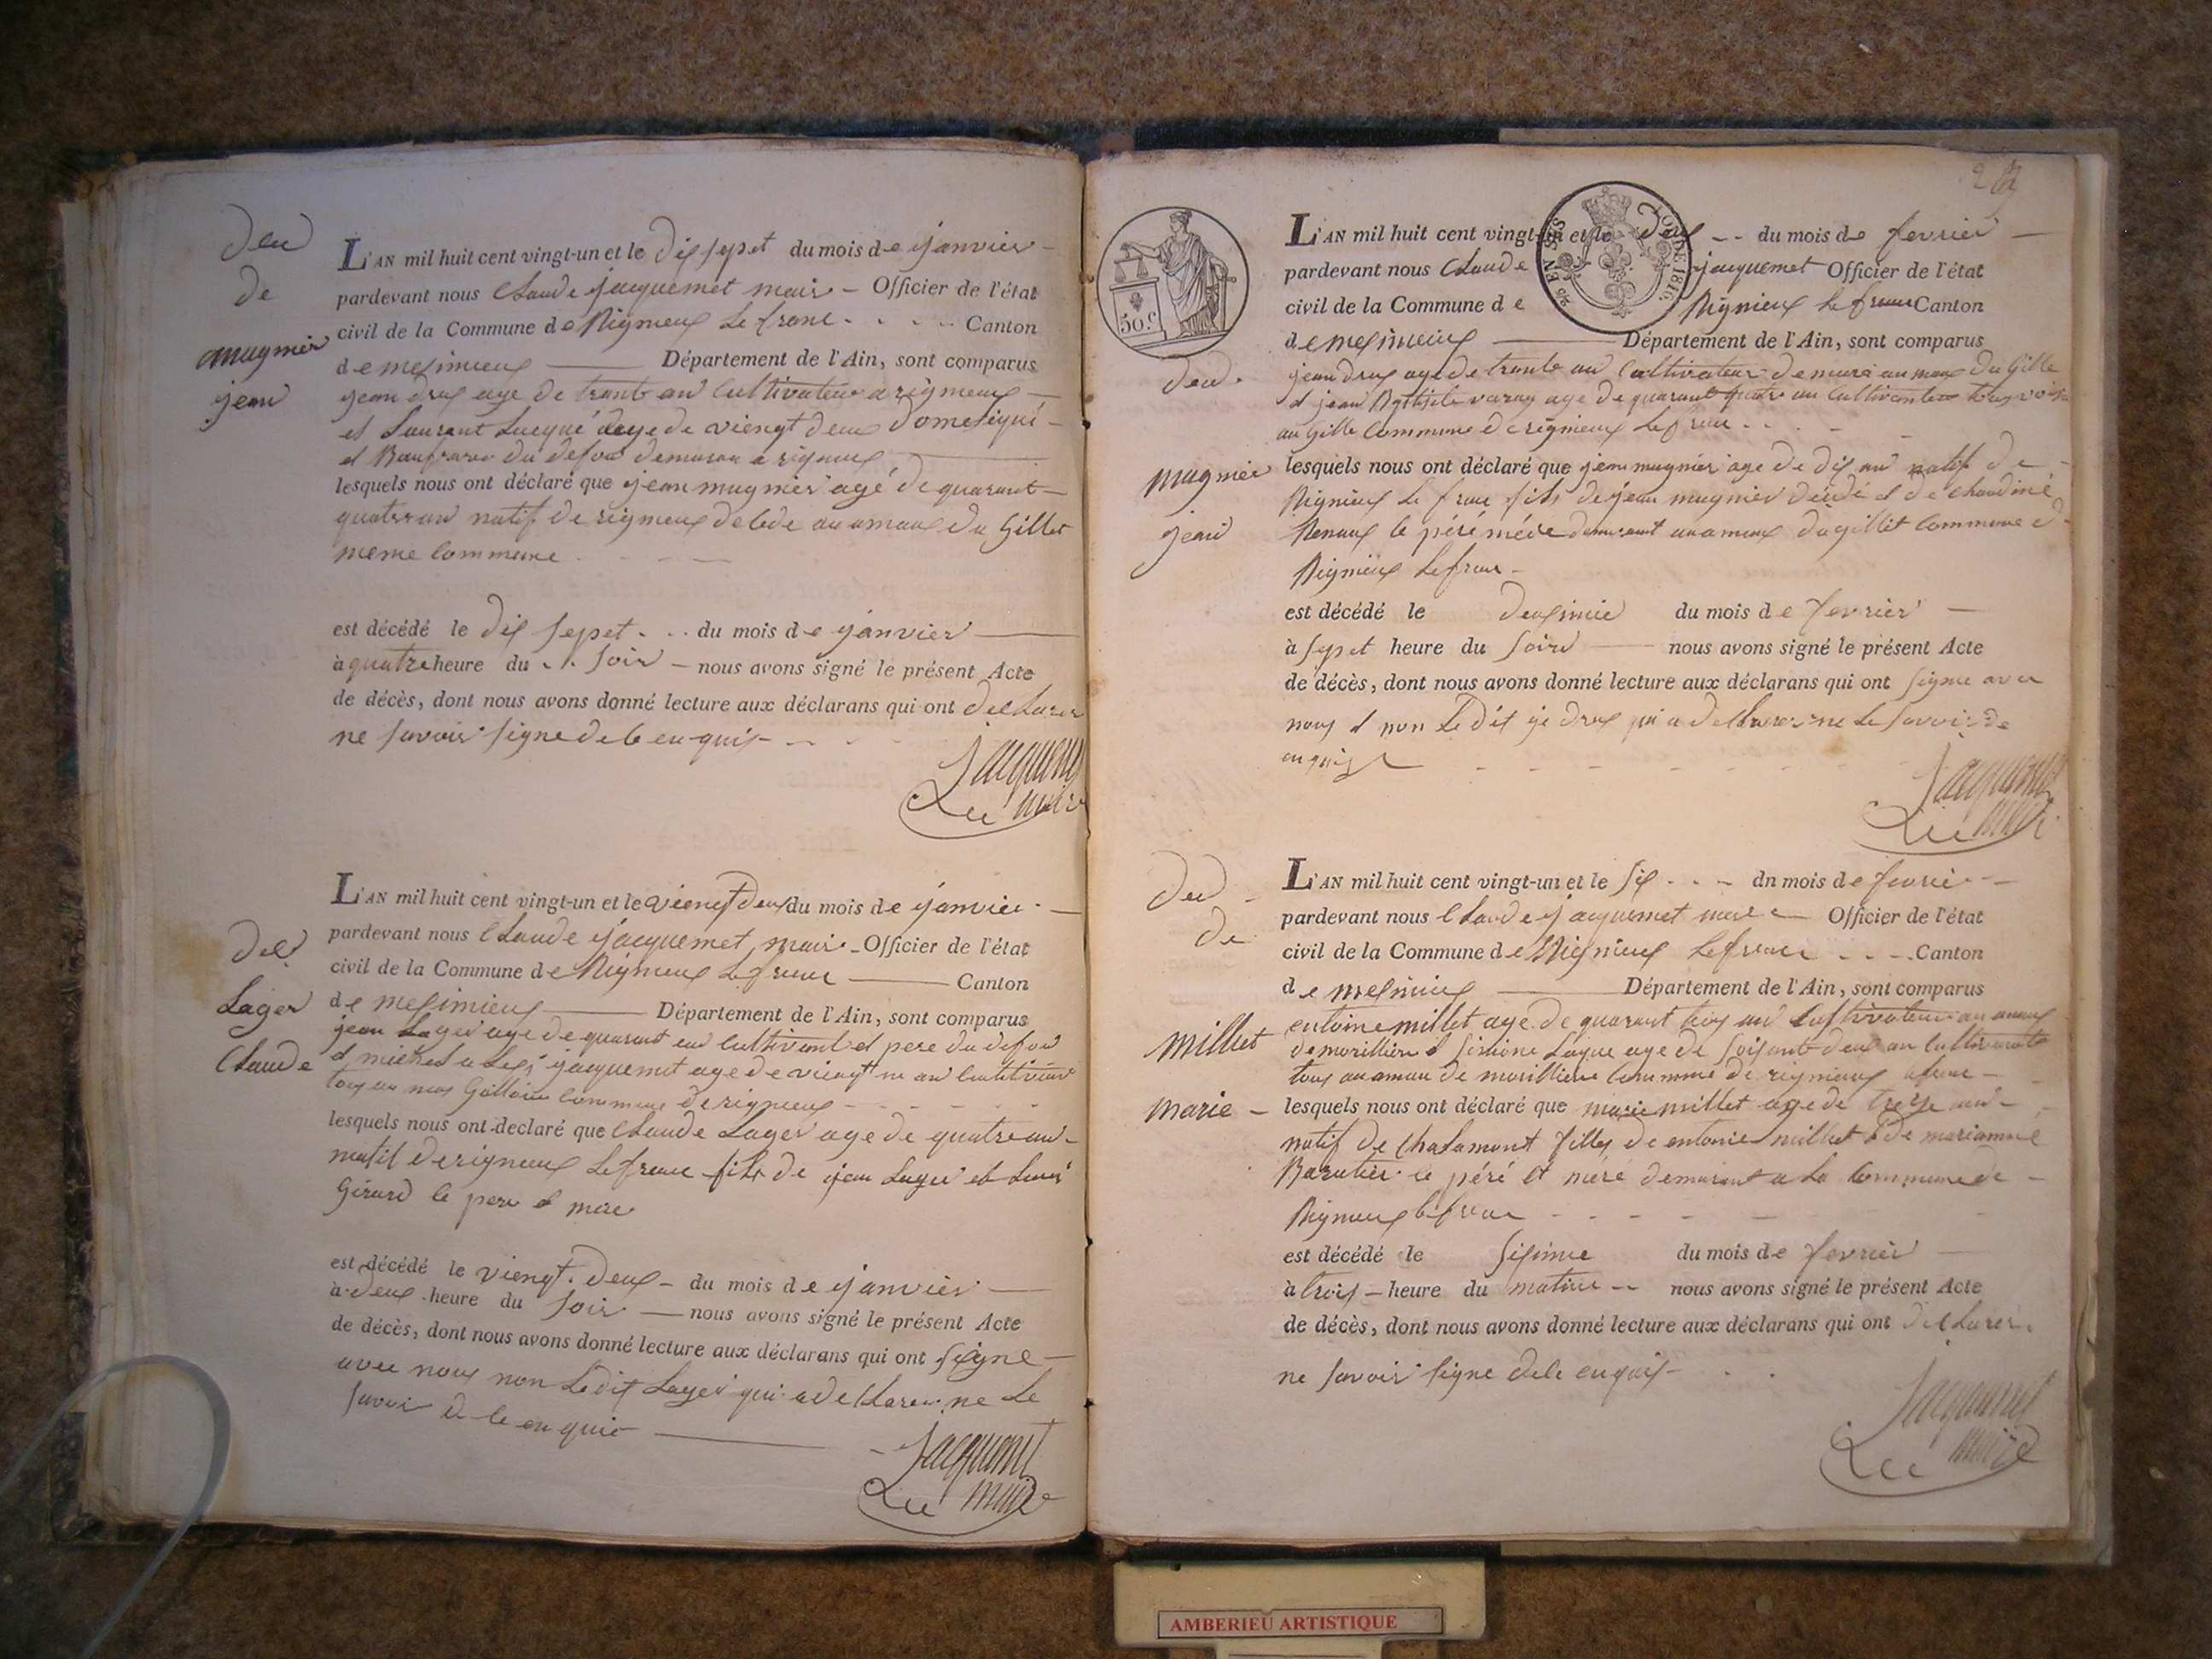 deu
de
mugnier
jean
L'AN mil huit cent vingt-un et le dix sepet du mois de janvier
pardevant nous Claude jacquemet maire Officier de l'état
civil de la Commune de Rigneux le franc Canton
de meximieux Département de l'Ain, sont comparus
jean drux age de trante an cultivateur a rigneux
et Laurent Lucque age de viengt deux
du defou demuran a rigneux
lesquels nous ont déclaré que jean mugnier agé de quarant
quatre an natif de rigneux de au amaux du Gillet
meme commune
est décédé le dix sepet du mois de janvier
à quatre heure du soir nous avons signé le présent Acte
de décès, dont nous avons donné lecture aux déclarans qui ont declarer
ne savoir signe de le enquis
Jacquemet
maire
deu
Lager
Claude
L'AN mil huit cent vingt-un et le viengt deux du mois de janvier
pardevant nous Claude jacquemet maire Officier de l'état
civil de la Commune de Rigneux Le franc Canton
de meximieux Département de l'Ain, sont comparus
jean Lager age de quarant an cultivant et pere du defou
et jacquemet age de viengt an
commune de rigneux
lesquels nous ont declaré que Claude Lager age de quatre an
natif de rigneux Lefranc fils de jean Lager et
Girard le pere et mere
est décédé le viengt deux du mois de janvier
à deux heure du soir nous avons signé le présent Acte
de décès, dont nous avons donné lecture aux déclarans qui ont signe
avec nous non Ledit Lager qui a declarer ne Le
savoir de le enquis
Jacquemet
maire
50 c
EN SUS
LOI DE 1816
L'AN mil huit cent vingt-un et le deux du mois de fevrier
pardevant nous Claude jacquemet Officier de l'état
civil de la Commune de Rignieux Le franc Canton
de meximieux Département de l'Ain, sont comparus
deu
jean drux age de trante an Cultivateur demurà au max du Gille
et jean varay age de quarant quatre an cultivanteur tous voisin
au Gille Commune de rignieux Le franc
mugnier
jean
lesquels nous ont déclaré que jean mugnier age de dix an natif de
Rignieux Le franc fils de jean mugnier dèidé et de Claudine
Renaux le péré mére demurant au amaux du gillit Commune d
Rignieux Lefranc
est décédé le deuximie du mois de fevrier
à sepet heure du soire nous avons signé le présent Acte
de décès, dont nous avons donné lecture aux déclarans qui ont signe avec
nous et non Le dit je drux qui a declarer ne Le savoir de
enquis
Jacquemet
maire
deu
de
millet
marie
L'AN mil huit cent vingt-un et le six dn mois de fevrie
pardevant nous Claude jacquemet maire Officier de l'état
civil de la Commune de Rignieux Lefranc Canton
de meximieux Département de l'Ain, sont comparus
entoine millet age de quarant trois an Cultivateur au amaux
de morilliere et simone age de soisant deux an Cultivante
tous au amau de morilliere Commune de rignieux lefranc
lesquels nous ont déclaré que marie millet age de treze an
natif de Chalamont filles de entonie millet et de marianne
Baratier le péré et meré demurant a la commune de
Rigneux le franc
est décédé le sisimie du mois de fevrier
à trois heure du matine nous avons signé le présent Acte
de décès, dont nous avons donné lecture aux déclarans qui ont declarer
ne savoir signe dele enquis
Jacquemet
maire
AMBERIEU ARTISTIQUE